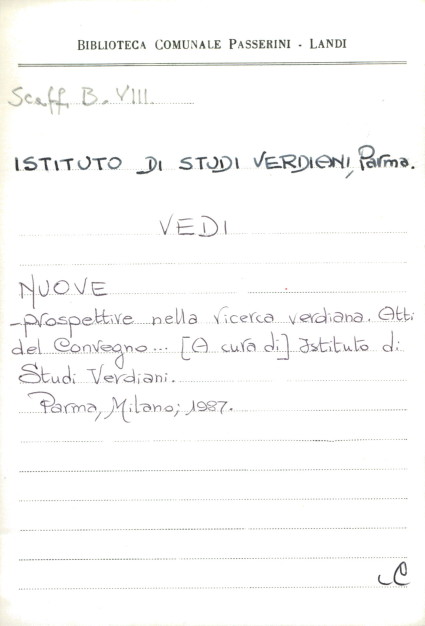 BIBLIOTECA COMUNALE PASSERINI - LANDI
Scaff. B. VIII.
ISTITUTO DI STUDI VERDIANI, Parma.
VEDI
NUOVE
-prospettive nella ricerca verdiana. Atti
del Convegno... [A cura di] Istituto di
Studi Verdiani.
Parma, Milano; 1987.